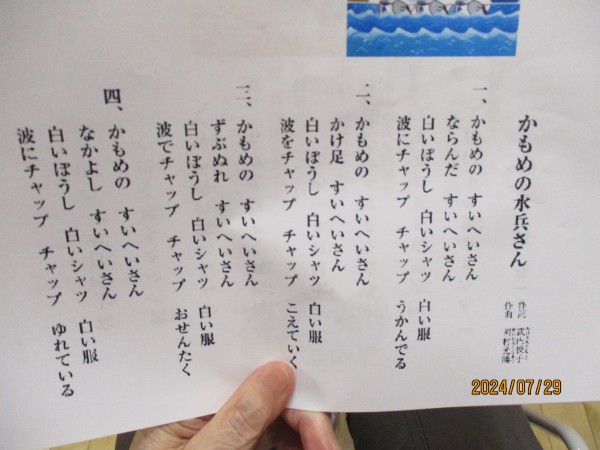 かもめの水兵さん
作詞 武内俊子
作曲 河村光陽
一、かもめの すいへいさん
ならんだ すいへいさん
白いぼうし 白いシャツ 白い服
波にチャップ チャップ うかんでる
二、かもめの すいへいさん
かけ足 すいへいさん
白いぼうし 白いシャツ 白い服
波をチャップ チャップ こえていく
三、かもめの すいへいさん
ずぶぬれ すいへいさん
白いぼうし 白いシャツ 白い服
波でチャップ チャップ おせんたく
四、かもめの すいへいさん
なかよし すいへいさん
白いぼうし 白いシャツ 白い服
波にチャップ チャップ ゆれている
2024/07/29